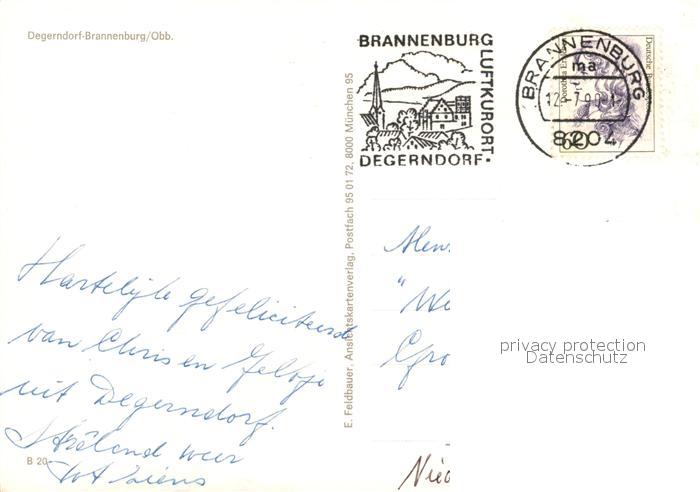 Degerndorf-Brannenburg/Obb.
BRANNENBURG
LUFTKURORT
DEGERNDORF
BRANNENBURG
ma
8204
60
Deutsche
E. Feldbauer, Ansichtskartenverlag, Postfach 95 01 72, 8000 München 95
Hartelijke gefeliciteerd
van Chris en
uit Degerndorf.
Stralend weer
tot ziens
B 20
privacy protection
Datenschutz